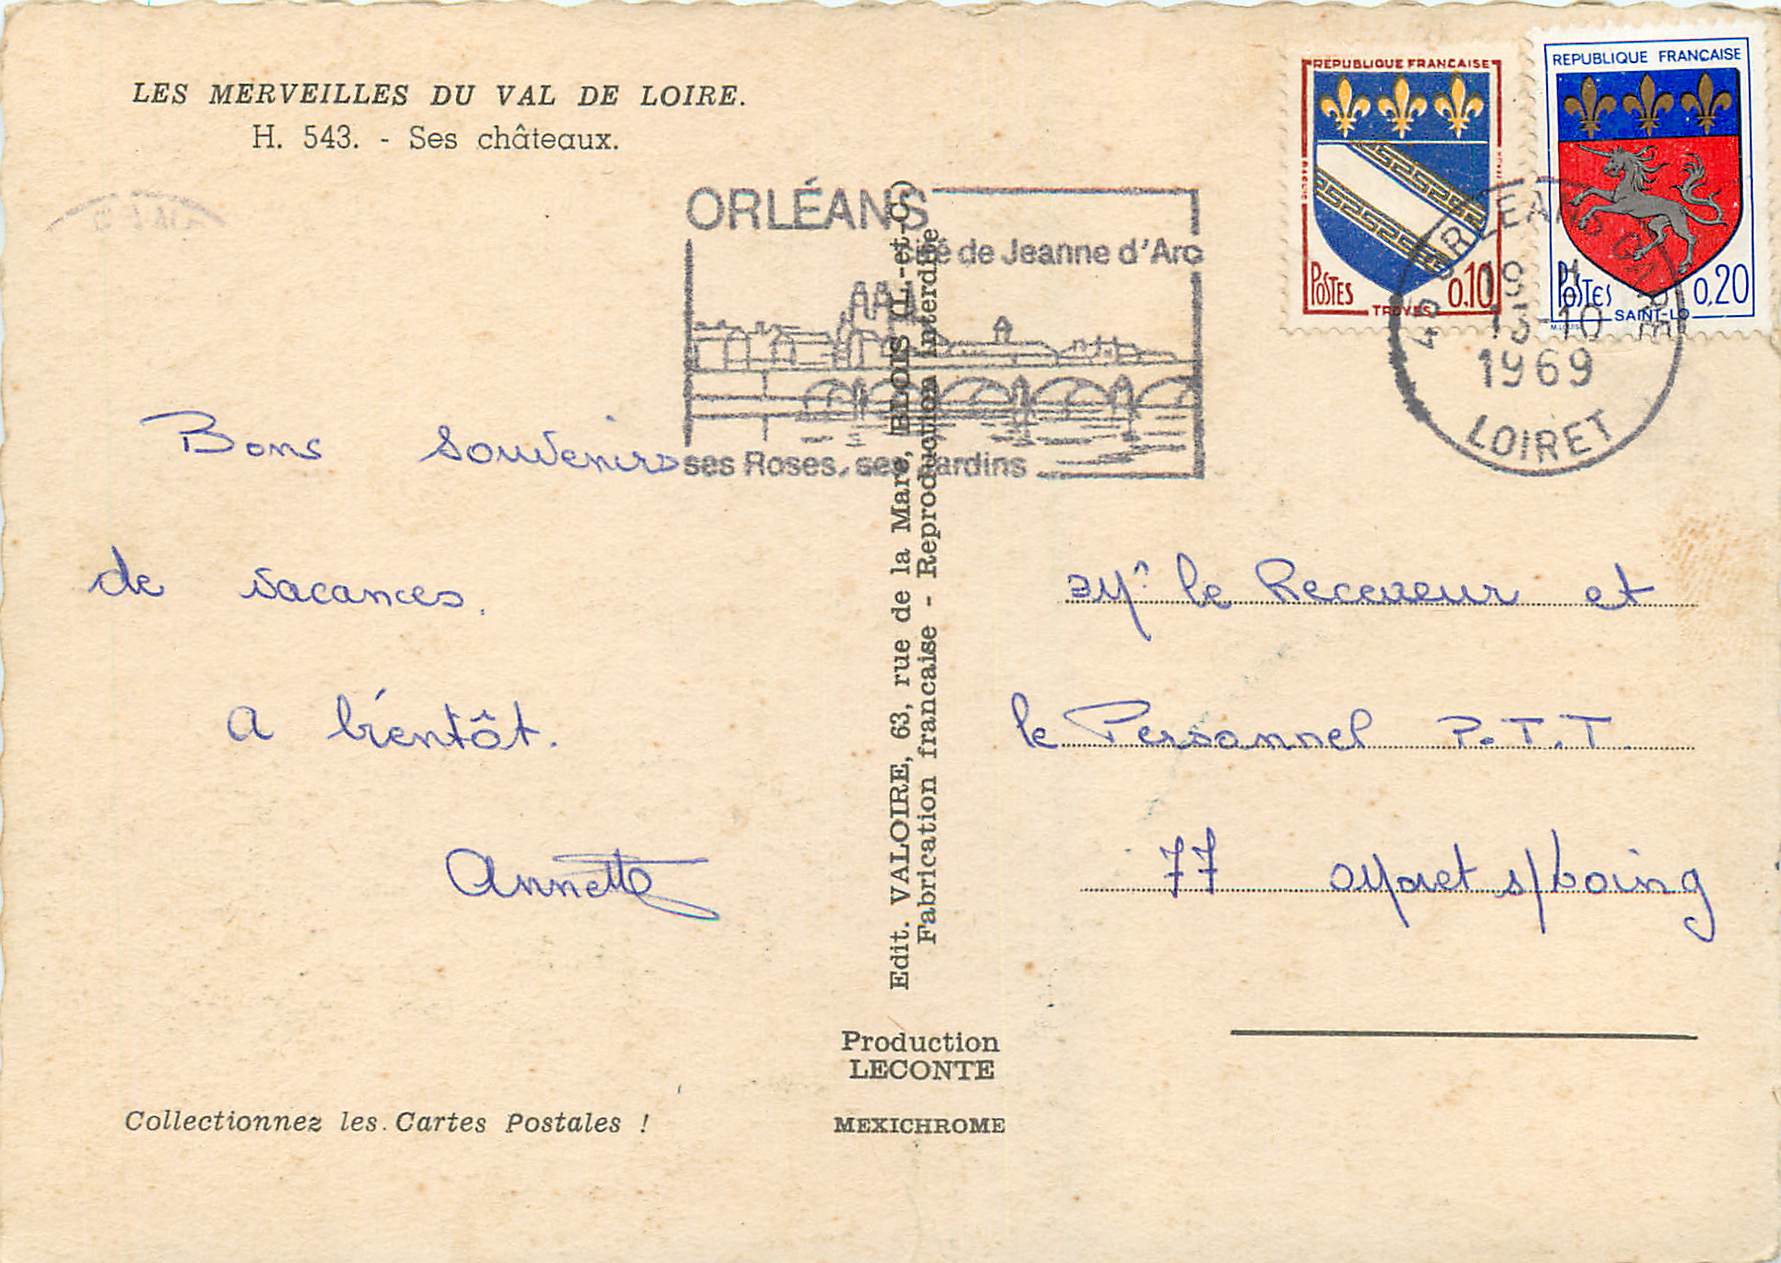 LES MERVEILLES DU VAL DE LOIRE.
H. 543. - Ses châteaux.
ORLÉANS
cité de Jeanne d'Arc
ses Roses, ses Jardins
REPUBLIQUE FRANCAISE
POSTES
0.10
TROYES
REPUBLIQUE FRANCAISE
POSTES
0,20
SAINT-LO
45 ORLEANS GARE
19 H
13-10
1969
LOIRET
Bons souvenirs
de vacances.
A bientôt.
Annette
Mr le Receveur et
le Personnel P.T.T.
77 Moret s/Loing
Edit. VALOIRE, 63, rue de la Mare, BLOIS (L.-et-C.)
Fabrication francaise - Reproduction interdite
Production
LECONTE
MEXICHROME
Collectionnez les Cartes Postales !